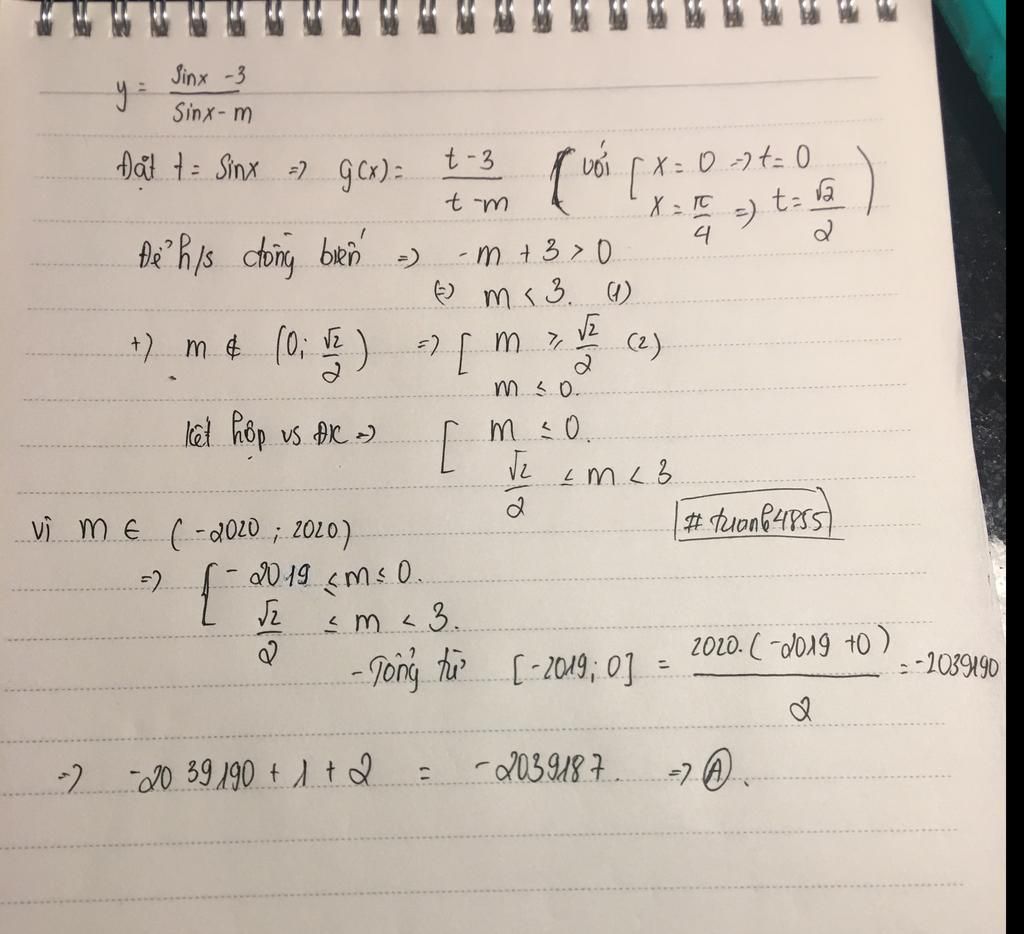 y = (sinx - 3)/(sinx - m)
Đặt t = sinx => g(x) = (t - 3)/(t - m) ( với [ x = 0 => t = 0
x = π/4 => t = √2/2 )
Để h/s đồng biến => -m + 3 > 0
(=) m < 3. (1)
+) m ∉ (0; √2/2) => [ m ≥ √2/2 (2)
m ≤ 0.
Kết hợp vs ĐK => [ m ≤ 0.
√2/2 ≤ m < 3
Vì m ∈ (-2020 ; 2020)
# tuan64855
=> [ -2019 ≤ m ≤ 0.
√2/2 ≤ m < 3.
- Tổng từ [-2019; 0] = 2020.(-2019 + 0)/2 = -2039190
=> -2039190 + 1 + 2 = -2039187. => A.